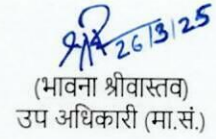 26/3/25
(भावना श्रीवास्तव)
उप अधिकारी (मा.सं.)